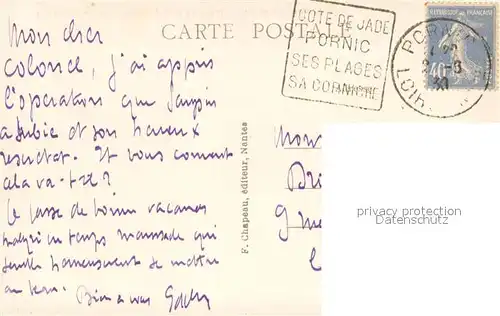 CARTE POSTALE
COTE DE JADE
PORNIC
SES PLAGES
SA CORNICHE
PORNIC
LOIRE
40
Mon cher
Colonel, j'ai appris
l'opération que
a subie et son heureux
résultat. Et vous comment
cela va-t-il?
Je passe de bonnes vacances
malgré un temps maussade qui
semble heureusement se mettre
au beau. Bien à vous
F. Chapeau, éditeur, Nantes
Mon
Bri
9
privacy protection
Datenschutz